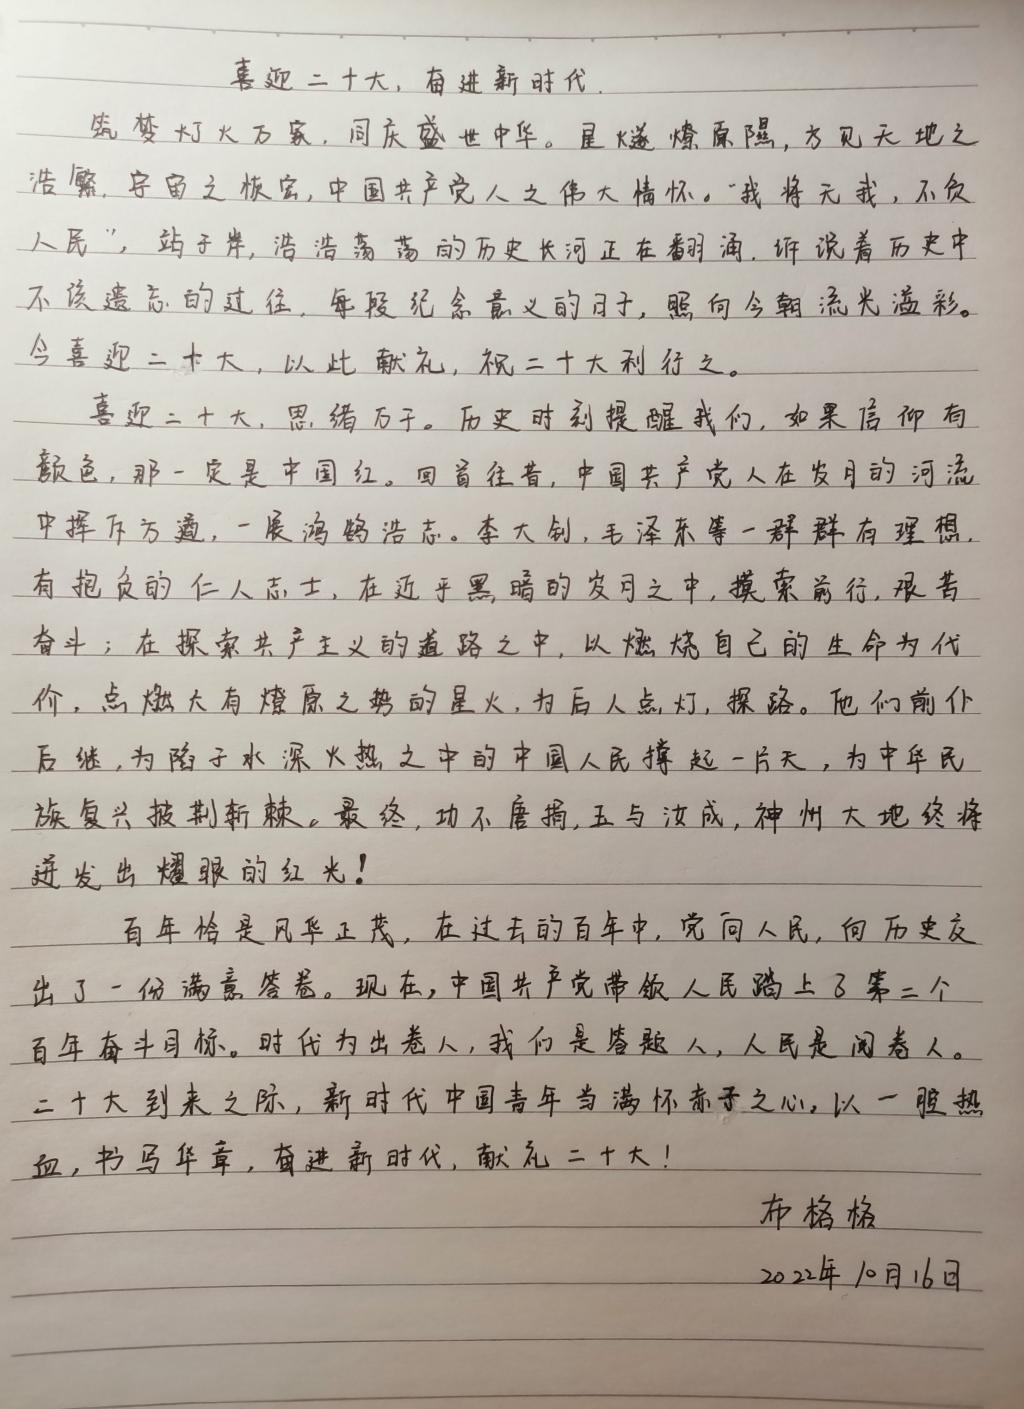 喜迎二十大,奋进新时代.
筑梦灯火万家,同庆盛世中华。星燧燎原隰,方见天地之
浩繁,宇宙之恢宏,中国共产党人之伟大情怀。“我将无我,不负
人民”,站于岸,浩浩荡荡的历史长河正在翻涌,诉说着历史中
不该遗忘的过往,每段纪念意义的日子,照向今朝流光溢彩。
今喜迎二十大,以此献礼,祝二十大利行之。
喜迎二十大,思绪万千。历史时刻提醒我们,如果信仰有
颜色,那一定是中国红。回首往昔,中国共产党人在岁月的河流
中挥斥方遒,一展鸿鹄浩志。李大钊,毛泽东等一群群有理想,
有抱负的仁人志士,在近乎黑暗的岁月之中,摸索前行,艰苦
奋斗;在探索共产主义的道路之中,以燃烧自己的生命为代
价,点燃大有燎原之势的星火,为后人点灯,探路。他们前仆
后继,为陷于水深火热之中的中国人民撑起一片天,为中华民
族复兴披荆斩棘。最终,功不唐捐,玉与汝成,神州大地终将
迸发出耀眼的红光!
百年恰是风华正茂,在过去的百年中,党向人民,向历史交
出了一份满意答卷。现在,中国共产党带领人民踏上了第二个
百年奋斗目标。时代为出卷人,我们是答题人,人民是阅卷人。
二十大到来之际,新时代中国青年当满怀赤子之心,以一腔热
血,书写华章,奋进新时代,献礼二十大!
布格格
2022年10月16日